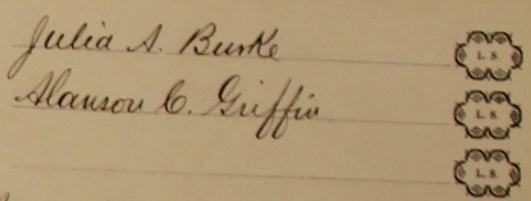 Julia A. Burke L. S.
Alanson C. Griffin L. S.
L. S.